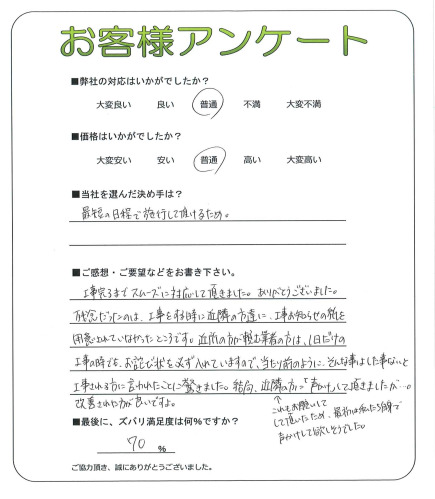 お客様アンケート
■弊社の対応はいかがでしたか?
大変良い 良い 普通 不満 大変不満
■価格はいかがでしたか?
大変安い 安い 普通 高い 大変高い
■当社を選んだ決め手は?
最短の日程で施行して頂けるため。
■ご感想・ご要望などをお書き下さい。
工事完了までスムーズに対応して頂きました。ありがとうございました。
残念だったのは、工事をする時に近隣の方達に、工事お知らせの紙を
用意されていなかったところです。近所の方が頼む業者の方は、1日だけの
工事の時でも、お詫び状を必ず入れていますので、当たり前のように、そんな事はした事ないと
工事される方に言われたことに驚きました。結局、近隣の方に「声かけして頂きましたが…。
改善された方が良いですよ。
これもお願いして
して頂いたため、最初は私たち自身で
声かけして欲しそうでした。
■最後に、ズバリ満足度は何%ですか?
70 %
ご協力頂き、誠にありがとうございました。